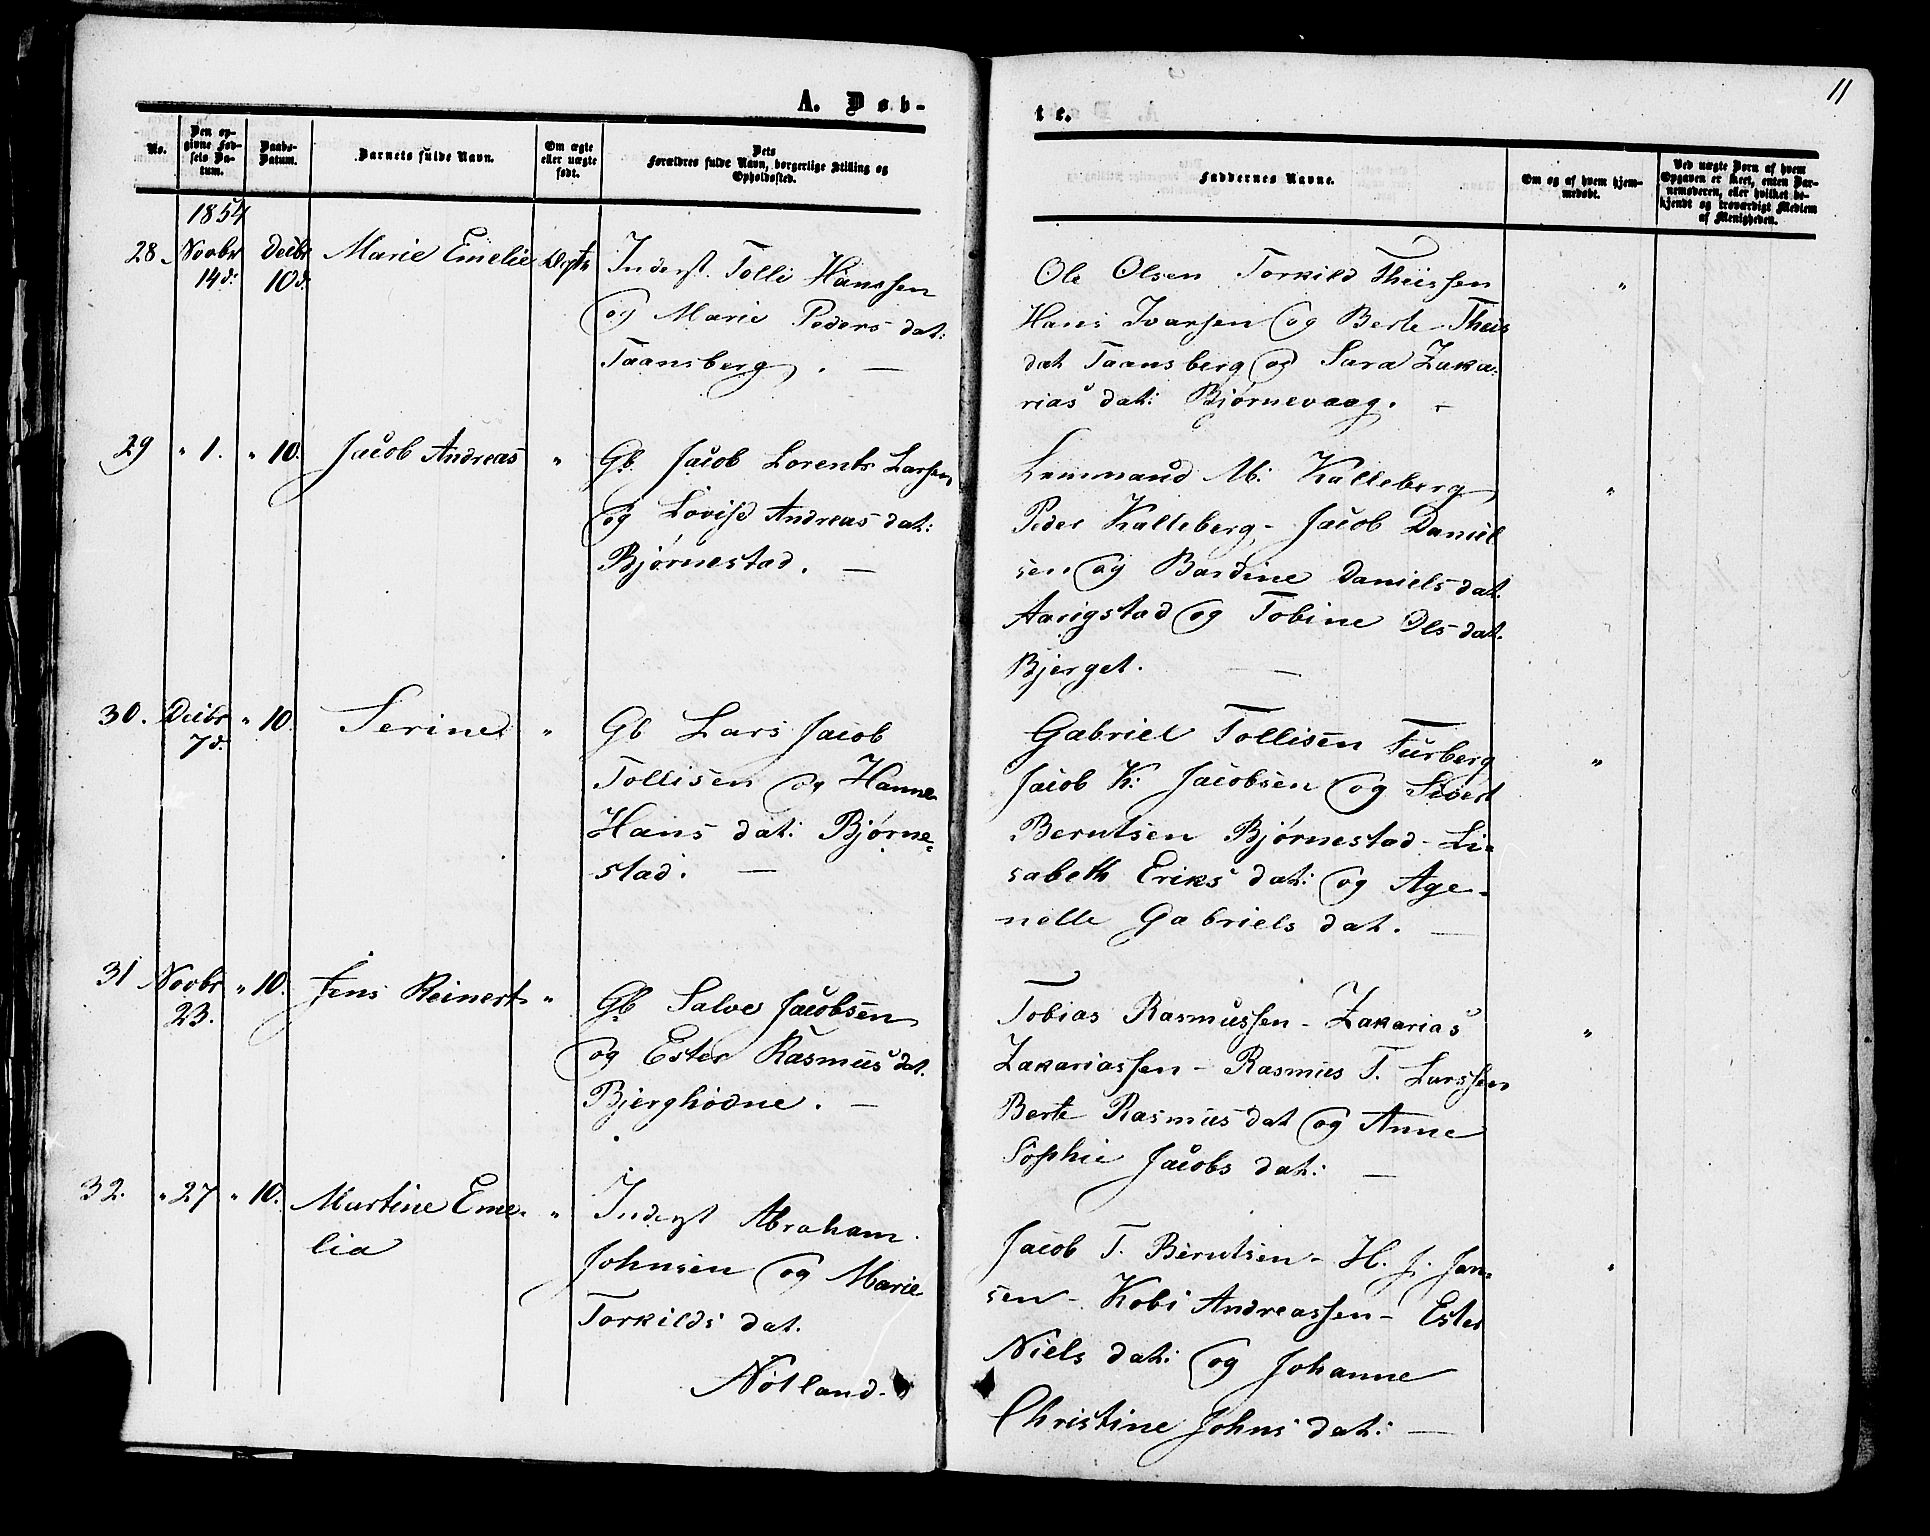 11
A. Døb-
te.
No.
Den op-
givne Fød-
sels Da-
tum.
Daabs-
Datum.
Barnets fulde Navn.
Om ægte
eller uægte
født.
Dets
Forældres fulde Navn, borgerlige Stilling og
Opholdssted.
Faddernes Navne.
Om og af hvem hjem-
medøbt.
Ved uægte Børn af hvem
Opgaven er skeet, enten Bar-
nemoderen, eller hvilket be-
kjendt og troværdigt Medlem
af Menigheden.
1854
28. Novbr Decbr Marie Emelie Ægte Inderst. Tolli Hanssen
14d: 10d: og Marie Peders dat:
Taansberg. —
Ole Olsen Torkild Theissen "
Hans Ivarsen og Berte Theis
dat Taansberg og Sara Zaka:
rias dat: Bjørnevaag. -
29 " 1. " 10. Jacob Andreas " Gb. Jacob Lorents Larsen
og Lovise Andreas dat:
Bjørnestad. —
M: Kalleberg "
Peder Kalleberg - Jacob Daniel
sen og Bardine Daniels dat.
Aarigstad og Tobine Ols dat.
Bjerget. —
30. Decbr " 10. Serine " Gb Lars Jacob
7d. Tollisen og Hanne
Hans dat: Bjørne=
stad. —
Gabriel Tollisen Furberg "
Jacob K: Jacobsen og Sivert
Berntsen Bjørnestad - Li=
sabeth Eriks dat: og Age-
nelle Gabriels dat. —
31 Novbr " 10. Jens Reinert " Gb. Salve Jacobsen
23. og Ester Rasmus dat.
Bjerghodne. —
Tobias Rasmussen - Zakarias "
Zakariassen - Rasmus T. Larssen
Berte Rasmus dat og Anne
Sophie Jacobs dat: —
32. " 27 " 10. Martine Eme- " Inderst Abraham
lia Johnsen og Marie
Torkilds dat.
Nøtland.
Jacob T. Berntsen - H. J. Jan- "
sen - Kobi Andreassen - Ester
Niels dat: og Johanne
Christine Johns dat: —